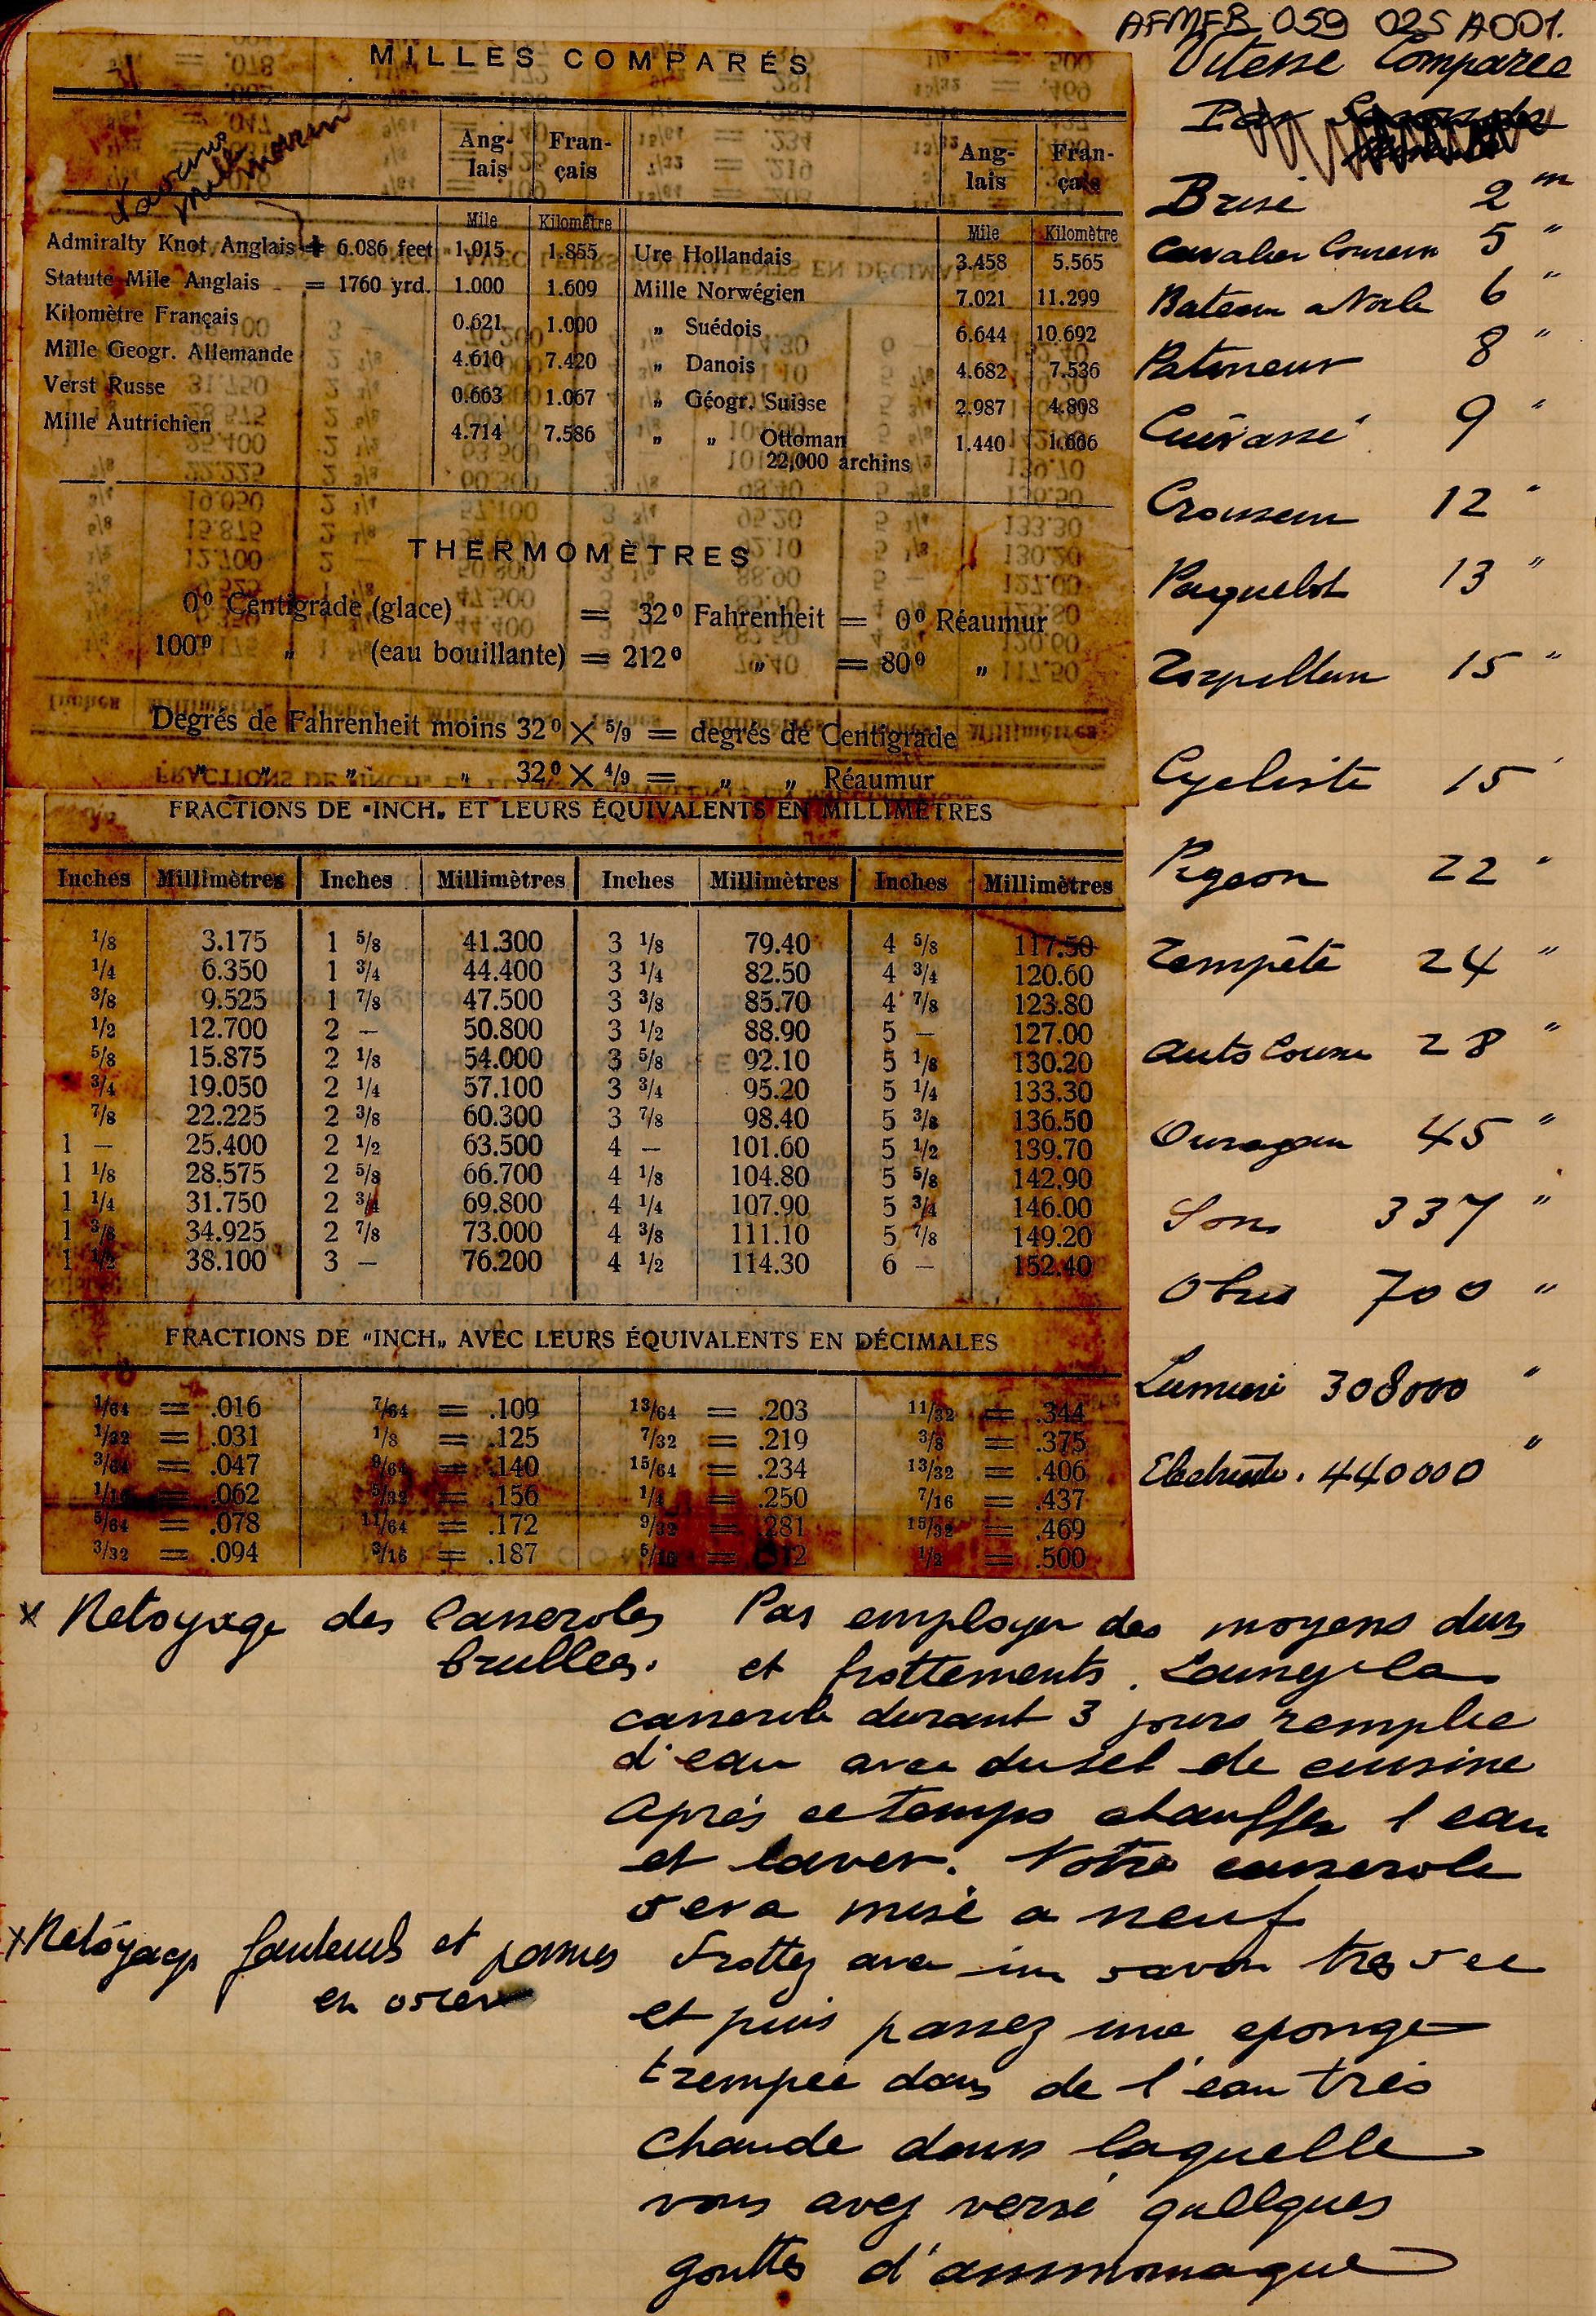 AFMFB 059 025 A001.
MILLES COMPARÉS
Ang- Fran- Ang- Fran-
lais çais lais çais
mille marin
Mile Kilomètre Mile Kilomètre
Admiralty Knot Anglais = 6.086 feet 1.015 1.855 Ure Hollandais 3.458 5.565
Statute Mile Anglais = 1760 yrd. 1.000 1.609 Mille Norwégien 7.021 11.299
Kilomètre Français 0.621 1.000 „ Suédois 6.644 10.692
Mille Geogr. Allemande 4.610 7.420 „ Danois 4.682 7.536
Verst Russe 0.663 1.067 „ Géogr. Suisse 2.987 4.808
Mille Autrichien 4.714 7.586 „ „ Ottoman 1.440 1.666
22,000 archins
THERMOMÈTRES
0º Centigrade (glace) = 32º Fahrenheit = 0º Réaumur
100º „ (eau bouillante) = 212º „ = 80º „
Degrés de Fahrenheit moins 32º × 5/9 = degrés de Centigrade
„ „ „ „ 32º × 4/9 = „ „ Réaumur
FRACTIONS DE "INCH„ ET LEURS ÉQUIVALENTS EN MILLIMÈTRES
Inches Millimètres Inches Millimètres Inches Millimètres Inches Millimètres
1/8 3.175 1 5/8 41.300 3 1/8 79.40 4 5/8 117.50
1/4 6.350 1 3/4 44.400 3 1/4 82.50 4 3/4 120.60
3/8 9.525 1 7/8 47.500 3 3/8 85.70 4 7/8 123.80
1/2 12.700 2 — 50.800 3 1/2 88.90 5 — 127.00
5/8 15.875 2 1/8 54.000 3 5/8 92.10 5 1/8 130.20
3/4 19.050 2 1/4 57.100 3 3/4 95.20 5 1/4 133.30
7/8 22.225 2 3/8 60.300 3 7/8 98.40 5 3/8 136.50
1 — 25.400 2 1/2 63.500 4 — 101.60 5 1/2 139.70
1 1/8 28.575 2 5/8 66.700 4 1/8 104.80 5 5/8 142.90
1 1/4 31.750 2 3/4 69.800 4 1/4 107.90 5 3/4 146.00
1 3/8 34.925 2 7/8 73.000 4 3/8 111.10 5 7/8 149.20
1 1/2 38.100 3 — 76.200 4 1/2 114.30 6 — 152.40
FRACTIONS DE "INCH„ AVEC LEURS ÉQUIVALENTS EN DÉCIMALES
1/64 = .016 7/64 = .109 13/64 = .203 11/32 = .344
1/32 = .031 1/8 = .125 7/32 = .219 3/8 = .375
3/64 = .047 9/64 = .140 15/64 = .234 13/32 = .406
1/16 = .062 5/32 = .156 1/4 = .250 7/16 = .437
5/64 = .078 11/64 = .172 9/32 = .281 15/32 = .469
3/32 = .094 3/16 = .187 5/16 = .312 1/2 = .500
Vitesse Comparee
Brise 2 m
Cavalier Coureur 5 "
Bateau a Voile 6 "
Patineur 8 "
Cuirassé 9 "
Croiseur 12 "
Paquebot 13 "
Torpilleur 15 "
Cycliste 15 "
Pigeon 22 "
Tempête 24 "
Auto Course 28 "
Ouragan 45 "
Son 337 "
Obus 700 "
Lumière 308000 "
Electricité. 440000 "
x Netoyage des Casseroles
brullees.
Pas employer des moyens durs
et frottements. Laissez la
casserole durant 3 jours remplie
d'eau avec du sel de cuisine
Après ce temps chauffer l eau
et laver. Votre casserole
sera mise a neuf
x Netoyage fauteuils et
en osier
Frottez avec un savon tres sec
et puis passez une eponge
trempée dans de l'eau très
chaude dans laquelle
vous avez versé quelques
gouttes d'ammoniaque